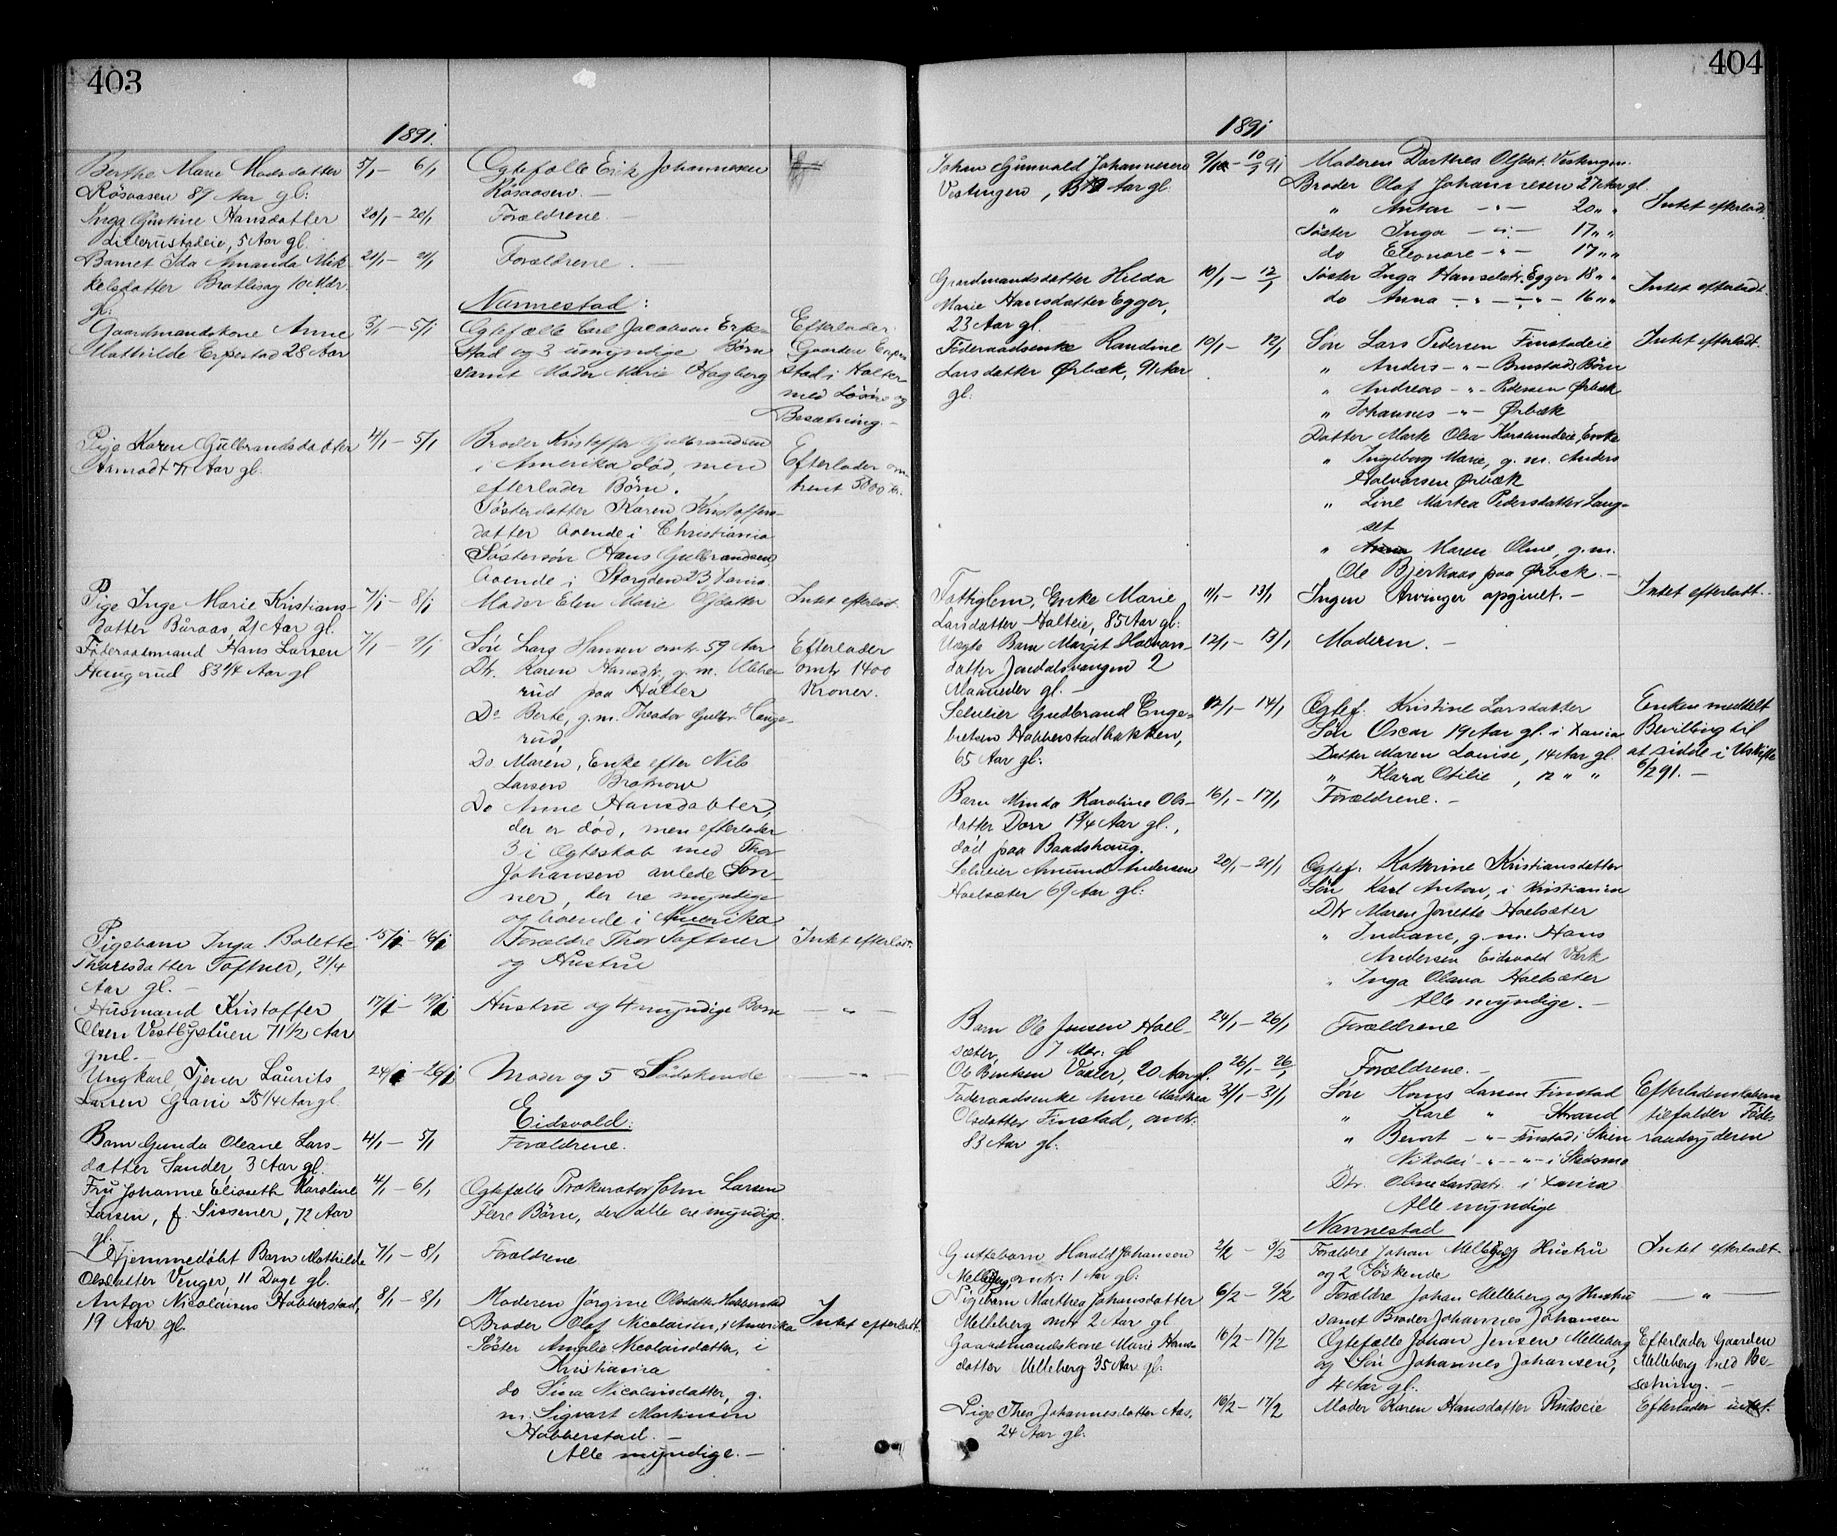 403
1891.
Berthe Marie Madsdatter 5/1 – 6/1 Egtefælle Erik Johannesen
Røsaasen 87 Aar gl: Røsaasen. –
Inga Gustine Hansdatter 20/1 – 20/1 Forældrene. –
Lillerustadeie, 5 Aar gl.
Barnet Ida Amanda Mik- 21/1 – 21/1 Forældrene. –
kelsdatter Bratlisag 10 Mdr.
gl:
Nannestad:
Gaardmandskone Anne 3/1 – 5/1 Egtefælle Carl Jacobsen Erpe- Efterlader
Mathilde Erpestad 28 Aar stad og 3 umyndige Børn Gaarden Erpe-
samt Moder Marie Hagberg stad i Holter
med Løsøre og
Besætning. –
Pige Karen Gulbrandsdatter 4/1 – 5/1 Broder Kristoffer Gulbrandsen
71 Aar gl. i Amerika død, men Efterlader om-
efterlader Børn. trent 5000 kr.
Søsterdatter Karen Kristoffers-
datter boende i Christiania
Søstersøn Hans Gulbrandsen
boende i Storgden 23 Xania.
Pige Inge Marie Kristians- 7/1 – 8/1 Moder Elen Marie Olsdatter Intet efterladt.
datter Buraas, 21 Aar gl.
Føderaadsmand Hans Larsen 7/1 – 9/1 Søn Lars Hansen omtr. 59 Aar Efterlader
Haugerud 83 3/4 Aar gl Dtr. Karen Hansdtr, g. m. Ulvhen- omtr 1400
rud paa Holter Kroner.
Do Berte, g. m. Theodor Gulbr. Hauge-
rud,
Do Maren, Enke efter Nils
Larsen Bramow
Do Anne Hansdatter,
der er død, men efterlader
3 i Egteskab med Thor
Johansen avlede Søn-
ner, der ere myndige
og boende i Amerika
Pigebarn Inga Bolette 15/1 – 16/1 Forældre Thor Toftner Intet efterladt.
Thoresdatter Toftner, 2 1/4 og Hustru
Aar gl. –
Husmand Kristoffer 17/1 – 19/1 Hustru og 4 myndige Børn – „ –
Olsen Vestbystuen 71 1/2 Aar
gml. –
Ungkarl, Tjener Laurits 24/1 – 26/1 Moder og 5 Sødskende – „ –
Larsen Grani 25 1/4 Aar gl.
Eidsvold:
Barn Gunda Oleane Lars- 4/1 – 5/1 Forældrene.
datter Sander, 3 Aar gl.
Fru Johanne Elisabeth Karoline 4/1 – 6/1 Egtefælle Prokurator John Larsen
Larsen, f. Sissener, 72 Aar Flere Børn, der alle ere myndige.
gl:
Hjemmedøbt Barn Mathilde 7/1 – 8/1 Forældrene
Olsdatter Venger, 11 Dage gl.
Anton Nicolaisen Habberstad, 8/1 – 8/1 Moderen Jørgine Olsdatter Habberstad
19 Aar gl. Broder Olaf Nicolaisen, i Amerika Intet efterladt.
Søster Amalie Nicolaisdatter, i
Kristiania
do Sina Nicolaisdatter, g.
m. Sigvart Martinsen
Habberstad. –
Alle myndige. –
404
1891
Johan Gunvald Johannesen 9/1 – 10/1 91 Moderen Dorthea Olsdat. Vestengen.
Vestengen, Aar gl. Broder Olaf Johannesen 27 Aar gl.
„ Anton – „ – 20 „ „ Intet efterladt.
Søster Inga – „ – 17 „ „
do Eleonore – „ – 17 „ „
Gaardmandsdatter Hilda 10/1 – 12/1 Søster Inga Hansdatr. Egger 18 „ „ Intet efterladt.
Marie Hansdatter Egger, do Anna – „ – „ – 16 „ „
23 Aar gl. –
Føderaadsenke Randine 10/1 – 12/1 Søn Lars Pedersen Finstadeie Intet efterladt.
Larsdatter Ørbæk, 91 Aar „ Anders – „ – Brustad Børn
gl: „ Andreas – „ – Pedersen Ørbæk
„ Johannes – „ – Ørbæk
Datter Marte Olea Karslundeie, Enke
„ Ingeborg Marie, g. m. Anders
Halvorsen Ørbæk
„ Line Martea Pedersdatter Lang-
set
„ Maren Oline, g. m.
Ole Bjerkaas paa Ørbæk. –
Fattiglem, Enke Marie 11/1 – 13/1 Ingen Arvinger opgivet. – Intet efterladt.
Larsdatter Holteie, 85 Aar gl:
Uægte Barn Margit Halvors- 12/1 – 13/1 Moderen. –
datter Jondalsvangen 2
Maaneder gl. –
Selveier Gudbrand Enge- 12/1 – 14/1 Egtef. Kristine Larsdatter Enken meddelt
bretsen Habberstadbakken, Søn Oscar 19 Aar gl. i Xania Bevilling til
65 Aar gl: Datter Maren Louise, 14 Aar gl. at sidde i Uskifte
„ Klara Otilie, 12 „ „ 6/2 91. –
Barn Minda Karoline Ols- 16/1 – 17/1 Forældrene. –
datter Dorr 1 3/4 Aar gl.,
død paa Baadshaug.
Selveier Amund Andersen 20/1 – 21/1 Egtef. Kathrine Kristiansdatter
Hoelsæter 69 Aar gl: Søn Karl Anton, i Kristiania
Dtr Maren Jonette Hoelsæter
„ Indiane, g. m. Hans
Andersen Eidsvold Værk
„ Inga Olava Hoelsæter
Alle myndige. –
Barn Ole Jensen Hoel- 24/1 – 26/1 Forældrene
sæter, 7 Mdr: gl
Ole Berntsen Vaaler, 20 Aar gl. 26/1 – 26/1 Forældrene. –
Føderaadsenke Anne Marthea 31/1 – 31/1 Søn Hans Larsen Finstad Efterladenskaberne
Olsdatter Finstad, omtr. „ Karl „ Strand tilfalder Føde-
83 Aar gl: „ Berort – „ – Finstad i Skien raadsyderne
Nikolai – „ – „ – i Skedsmo
Dtr. Oline Larsdtr. i Xania.
Alle myndige
Nannestad
Guttebarn Harald Johansen 2/2 – 3/2 Forældre Johan Melleberg Hustru Intet efterladt
Melleberg omtr: 1 Aar gl: og 2 Søskende
Pigebarn Marthea Johansdatter 6/2 – 9/2 Forældre Johan Melleberg og Hustru – „ –
Melleberg omtr 2 Aar gl samt Broder Johannes Johansen
Gaardmandskone Marie Hans- 16/2 – 17/2 Egtefælle Johan Jensen Melleberg Efterlader Gaarden
datter Melleberg 35 Aar gl: og Søn Johannes Johansen, Melleberg med Be-
4 Aar gl. sætning. –
Pige Thea Johannesdatter Aas, 16/2 – 17/2 Moder Karen Hansdatter Rudseie Efterlader intet.
24 Aar gl: